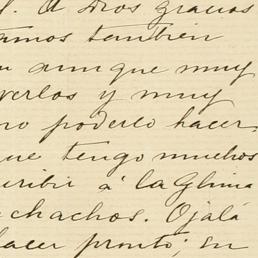 . A Dios gracias
amos tambien
aunque muy
verlos y muy
no poderlo hacer.
que tengo muchos
cribir á la Ghima
chachos. Ojalá
hacer pronto; en